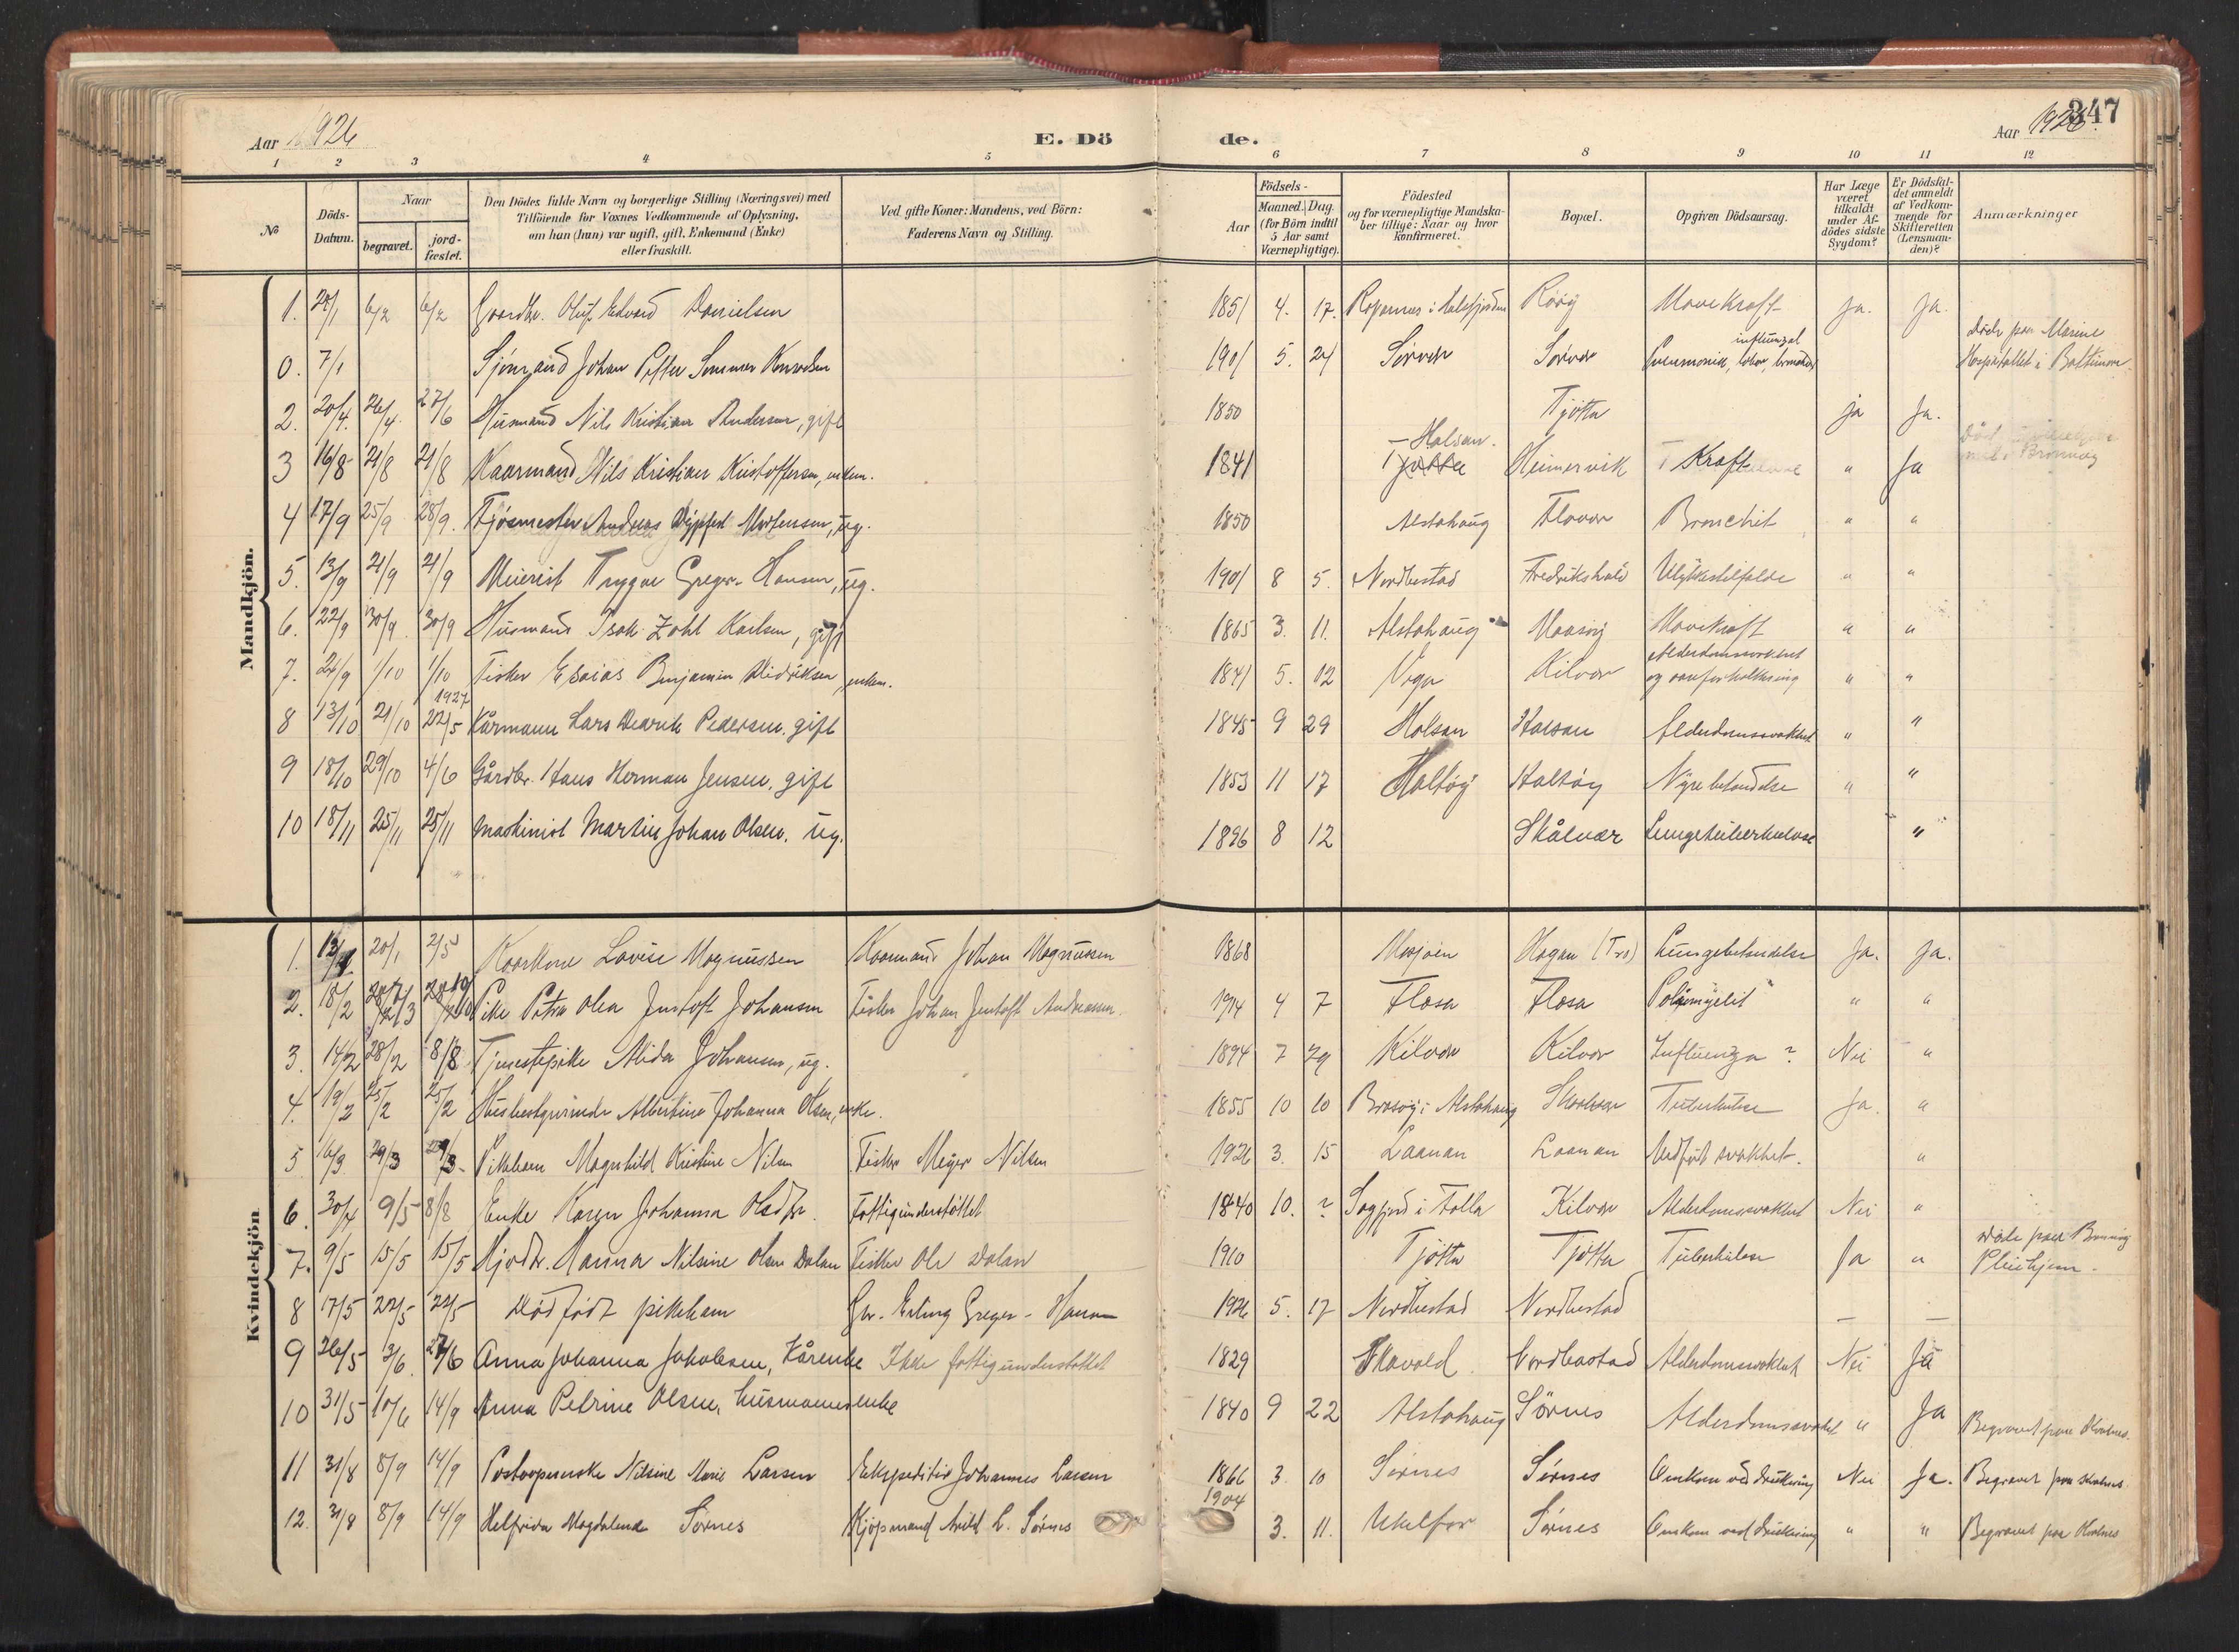 Aar 1926
E. Döde.
Aar 1926.
347
1 2 3 4 5 6 7 8 9 10 11 12
No
Döds-Datum.
Naar
begravet.
jord-fæstet.
Den Dödes fulde Navn og borgerlige Stilling (Næringsvei) med
Tilföiende for Voxnes Vedkommende af Oplysning,
om han (hun) var ugift, gift, Enkemand (Enke)
eller fraskilt.
Ved gifte Koner: Mandens, ved Börn:
Faderens Navn og Stilling.
Födsels-
Aar
Maaned. Dag.
(for Börn indtil
5 Aar samt
Værnepligtige).
Födested
og for værnepligtige Mandska-
ber tillige: Naar og hvor
konfirmeret.
Bopæl.
Opgiven Dödsaarsag.
Har Læge
været
tilkaldt
under Af-
dödes sidste
Sygdom?
Er Dödsfal-
det anmeldt
af Vedkom-
mende for
Skifteretten
(Lensman-
den)?
Anmærkninger
Mandkjön.
1. 6/2 6/2 Gaardbr. Oluf Edvard Danielsen 1851 4. 17. Røøy Mavekræft ja. ja.
0. 7/1 Sjømand Johan Petter 1901 5. 24 Sørvær Sørvær influenzal Pneumonia, døde paa Marine Hospitallet i Baltimore.
2. 20/4. 26/4. 27/6 Husmand Nils Kristian Andersen, gift 1850 Tjøtta ja Ja.
3 16/8 21/8 21/8 Kaarmand Nils Kristian Kristoffersen, enkem. 1841 Halsan. Tjøtta Heimervik Kræft " Ja
4 17/9 25/9 28/9. Fjøsmester Andreas Mortensen, ug. 1850 Alstahaug Flovær Bronchit " "
5. 13/9 21/9 21/9 Meierist Trygve Greger-Hansen, ug. 1901 8 5. Nordbustad Fredrikshald Ulykkestilfælde " "
6. 22/9 30/9 30/9 Husmand Isak Zahl Karlsen, gift 1865 3. 11. Alstahaug Maasøy Mavekræft " "
7. 24/9 1/10 1/10 Fisker Esaias Benjamin Didriksen, enkem. 1841 5. 12 Vega Kilvær Alderdomssvakhet og aareforkalkning " "
8 13/10 21/10 1927 22/5 Kårmann Lars Pedersen, gift 1845 9 29 Halsan Halsan Alderdomssvakhet " "
9 18/10 29/10 4/6 Gårdbr. Hans Herman Jensen, gift 1853 11 17 Haltøy Haltøy Nyrebetændelse " "
10 18/11 25/11 25/11 Maskinist Martin Johan Olsen. ug. 1896 8 12 Skålvær Lungetuberkulose "
Kvindekjön
1. 20/1 2/5 Kaarkone Lovise Magnussen Kaarmand Johan Magnussen 1868 Mosjøen Hagen (Tro) Lungebetændelse Ja. ja.
2. 18/2 Pike Petra Olea Jentoft Johansen Fisker Johan Jentoft Andreassen. 1914 4 7 Flosa Flosa Poliomyelit " "
3. 14/2 28/2 8/8 Tjenestepike Alida Johansen, ug. 1894 7 29 Kilvær Kilvær Influenza ? Nei "
4. 19/2 25/2 25/2 Husbestyrerinde Albertine Johanna Olsen, enke. 1855 10 10 Brasøy i Alstahaug Skaalvær Tuberkulose Ja. "
5 16/3 29/3 29/3 Pikebarn Magnhild Kristine Nilsen Fisker Meyer Nilsen 1926 3. 15 Laanan Laanan Medfødt svakhet. "
6. 30/4 9/5 8/8 Enke Karen Johanna Olsdtr. Fattigunderstøttet 1840 10. ? Sagfjord i Folla Kilvær Alderdomssvakhet Nei "
7. 9/5 15/5 15/5 Hjemv. Hanna Nilsine Olsen Dalan Fisker Ole Dalan 1910 Tjøtta Tjøtta Tuberkulose Ja " døde paa Pleiehjem.
8 17/5 22/5 22/5 Dødfødt pikebarn Gbr. Erling Greger-Hansen 1926 5. 17 Nordbustad Nordbustad — —
9 26/5 3/6. 27/6 Anna Johanna Jakobsen, Kårenke Ikke fattigunderstøttet 1829 Skavold. Nordbustad Alderdomssvakhet Nei Ja
10 31/5 10/6 14/9 Anna Petrine Olsen, husmannsenke 1840 9 22 Alstahaug Sørnes Alderdomssvakhet " Ja Begravet paa
11 31/8 8/9 14/9 Postaapnerske Nilsine Marie Larsen Ekspeditør Johannes Larsen 1866 3. 10 Sørnes Sørnes Omkom ved drukning Nei Ja. Begravet paa
12. 31/8 8/9 14/9 Helfrida Magdalena Sørnes Kjøpmand Arild L. Sørnes 1904 3. 11. Sørnes Omkom ved drukning " " Begravet paa